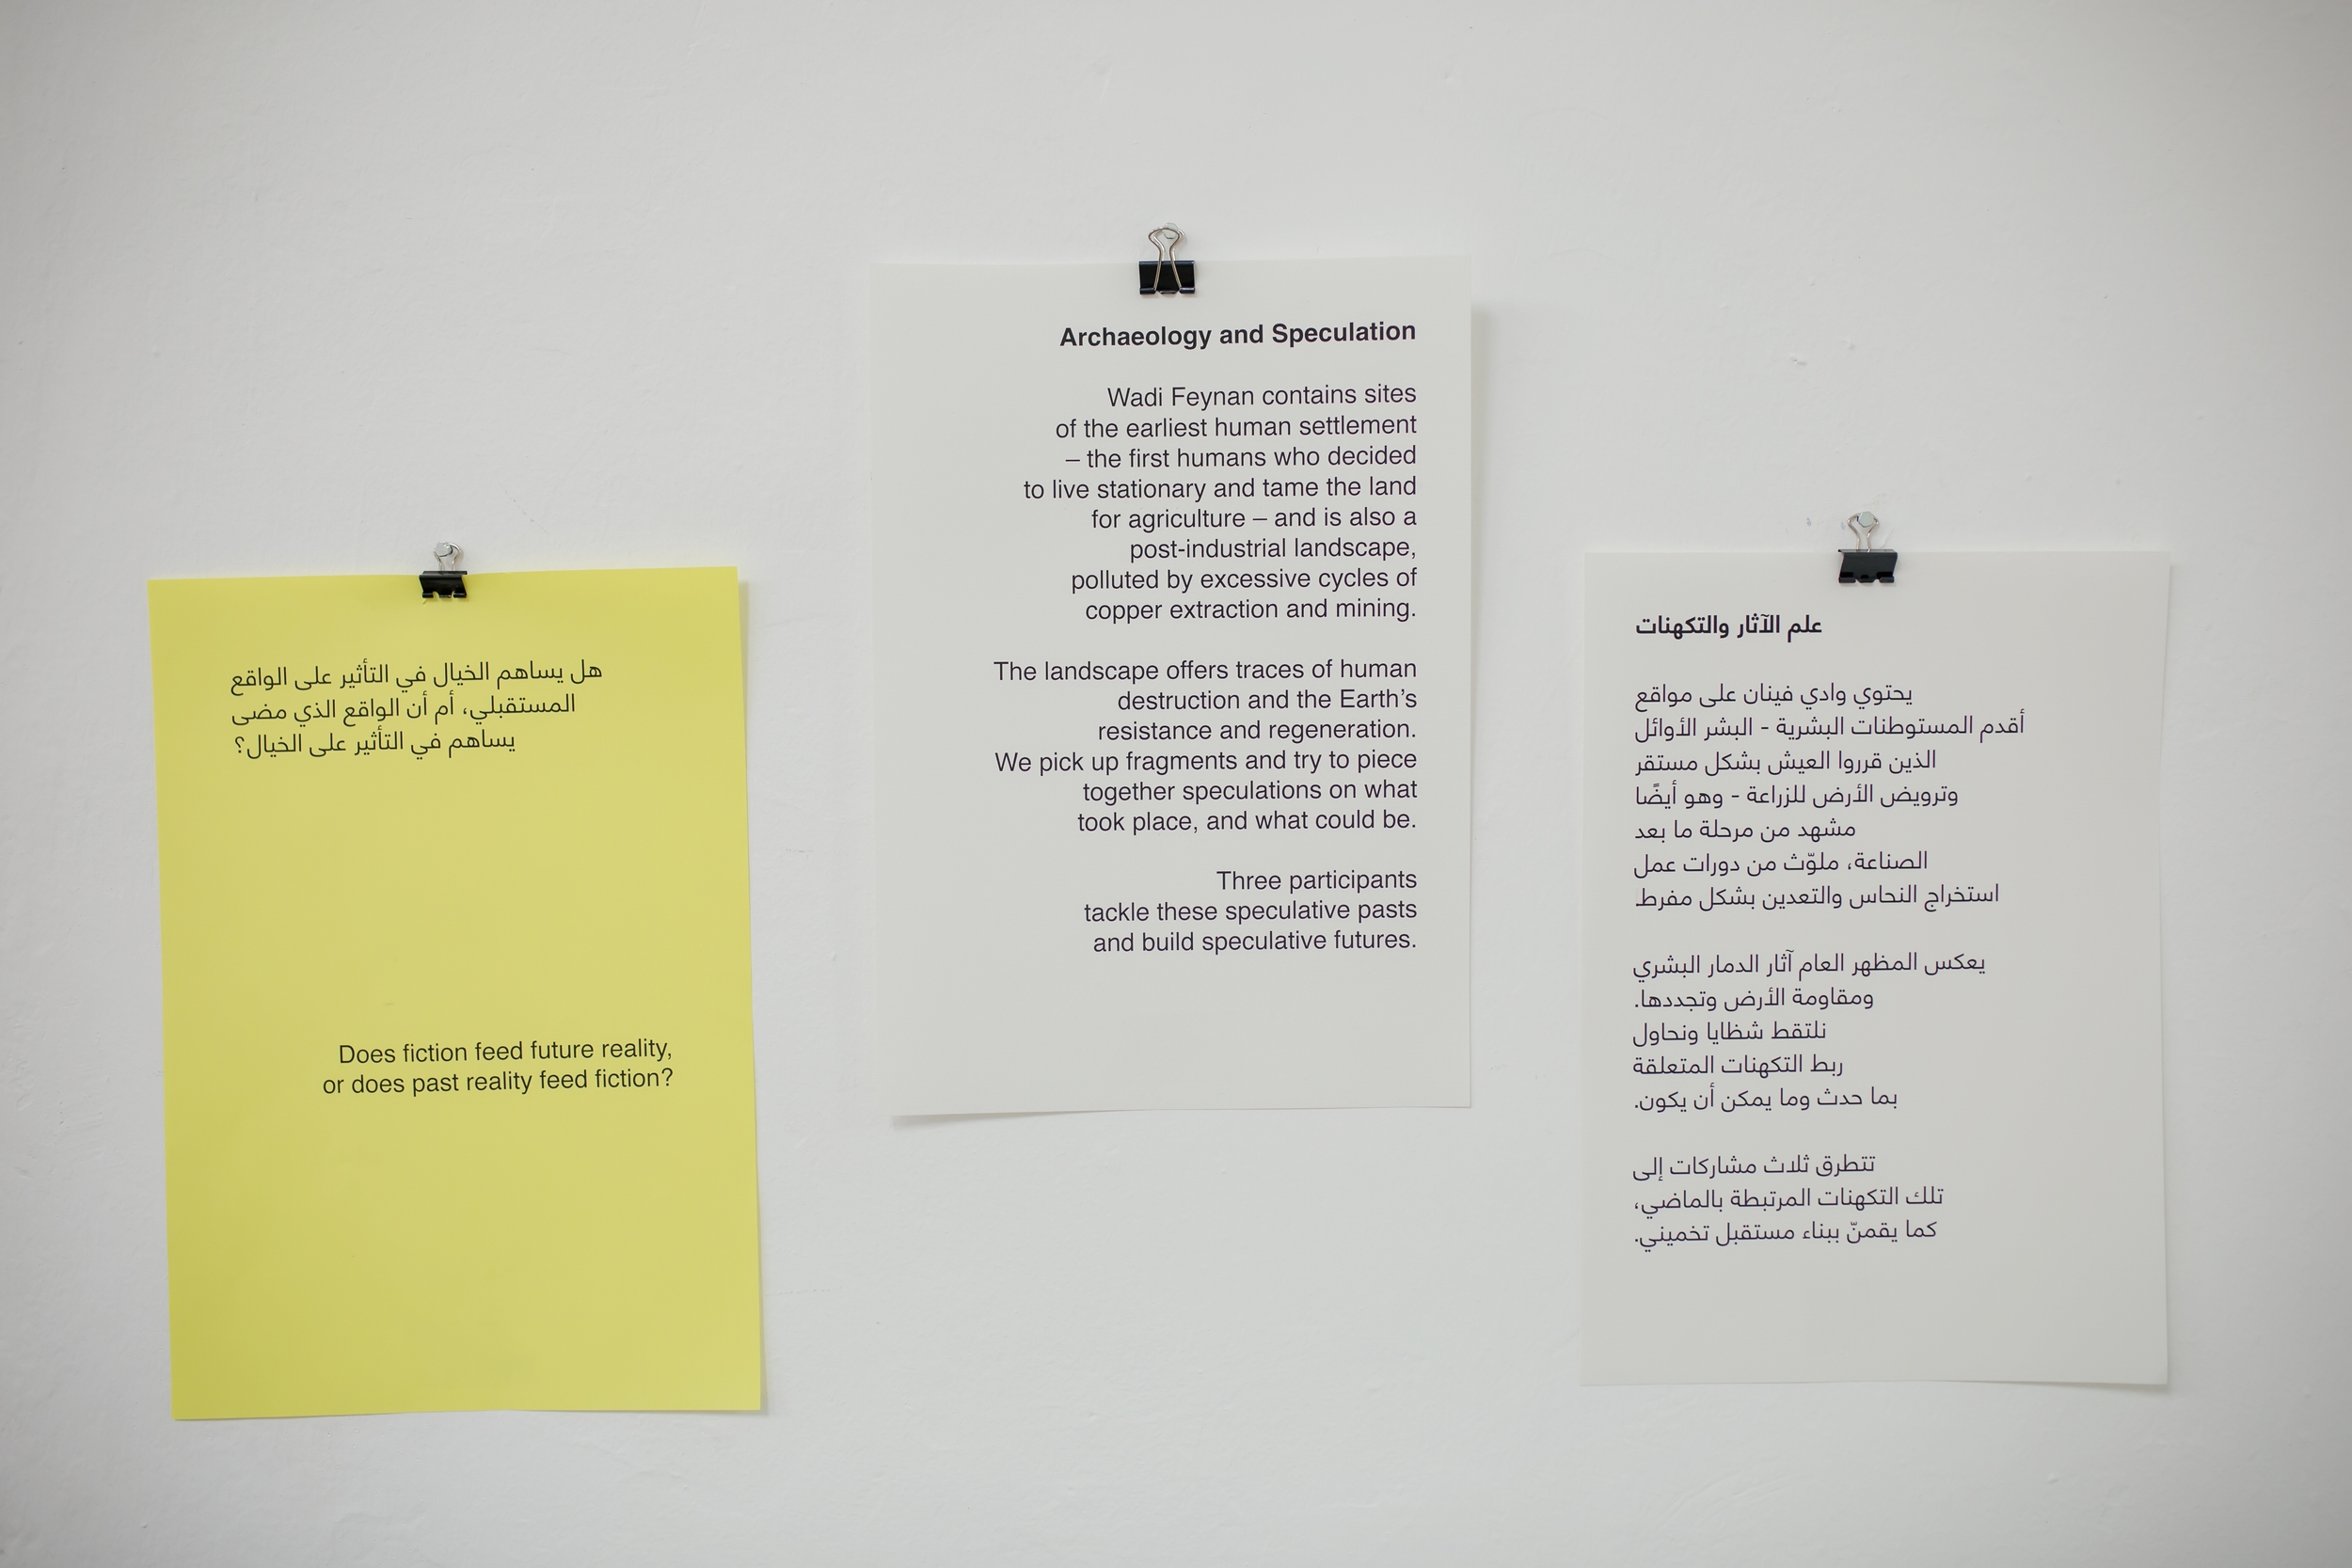 هل يساهم الخيال في التأثير على الواقع
المستقبلي، أم أن الواقع الذي مضى
يساهم في التأثير على الخيال؟
Does fiction feed future reality,
or does past reality feed fiction?
Archaeology and Speculation
Wadi Feynan contains sites
of the earliest human settlement
– the first humans who decided
to live stationary and tame the land
for agriculture – and is also a
post-industrial landscape,
polluted by excessive cycles of
copper extraction and mining.
The landscape offers traces of human
destruction and the Earth’s
resistance and regeneration.
We pick up fragments and try to piece
together speculations on what
took place, and what could be.
Three participants
tackle these speculative pasts
and build speculative futures.
علم الآثار والتكهنات
يحتوي وادي فينان على مواقع
أقدم المستوطنات البشرية - البشر الأوائل
الذين قرروا العيش بشكل مستقر
وترويض الأرض للزراعة - وهو أيضًا
مشهد من مرحلة ما بعد
الصناعة، ملوّث من دورات عمل
استخراج النحاس والتعدين بشكل مفرط.
يعكس المظهر العام آثار الدمار البشري
ومقاومة الأرض وتجددها.
نلتقط شظايا ونحاول
ربط التكهنات المتعلقة
بما حدث وما يمكن أن يكون.
تتطرق ثلاث مشاركات إلى
تلك التكهنات المرتبطة بالماضي،
كما يقمنّ ببناء مستقبل تخميني.